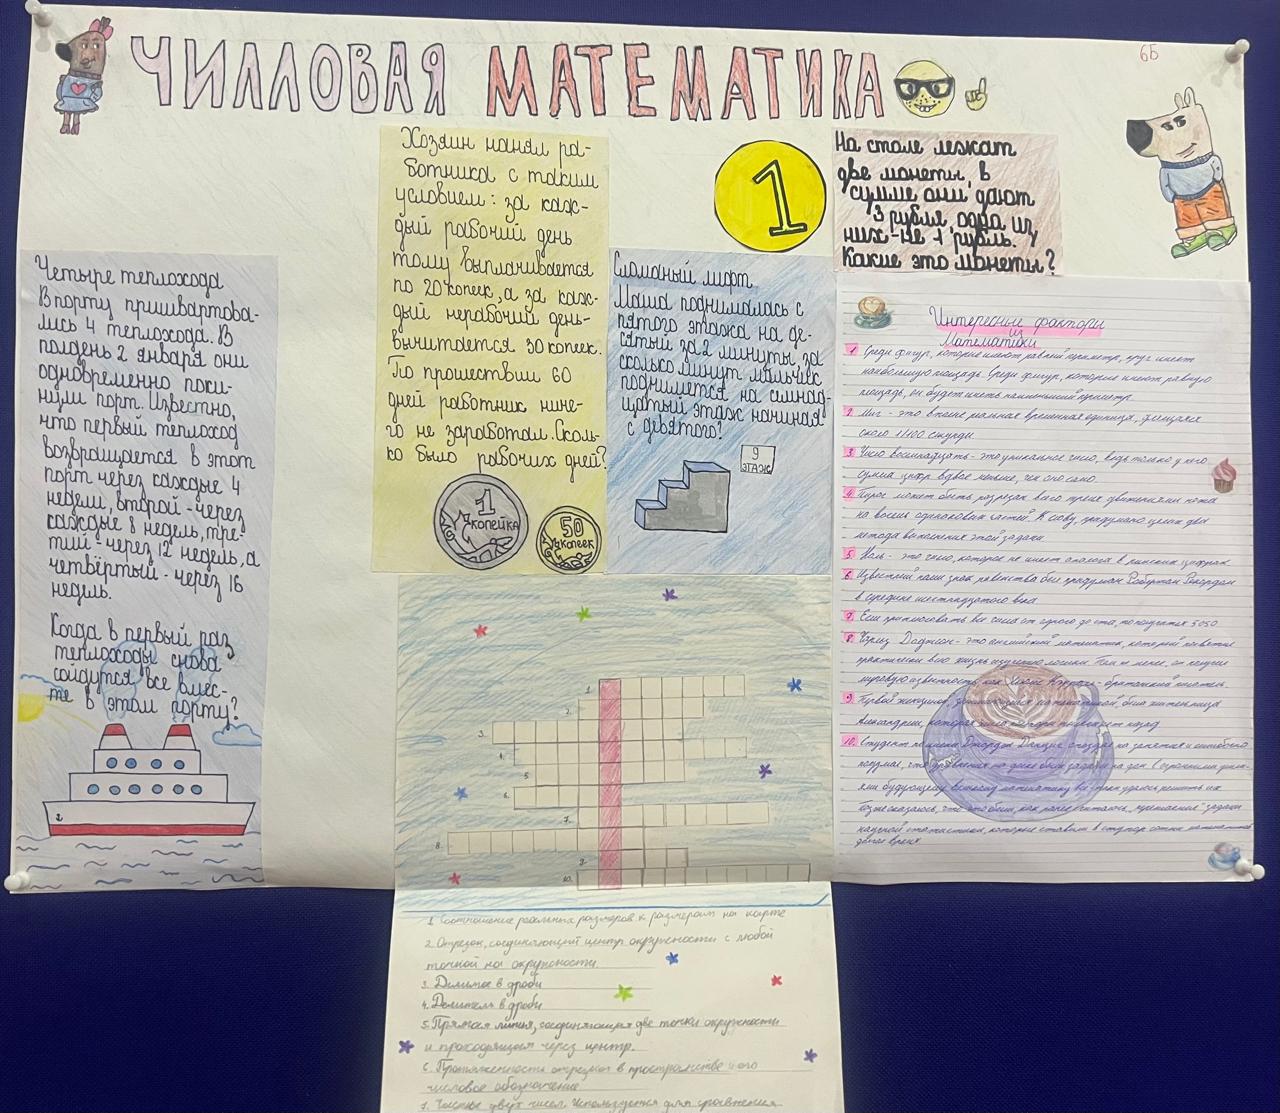 ЧИЛЛОВАЯ МАТЕМАТИКА
6Б
Четыре теплохода
В порту пришвартова-
лись 4 теплохода. В
полдень 2 января они
одновременно поки-
нули порт. Известно,
что первый теплоход
возвращается в этот
порт через каждые 4
недели, второй - через
каждые 8 недель, тре-
тий - через 12 недель, а
четвёртый - через 16
недель.
Когда в первый раз
теплоходы снова
сойдутся все вмес-
те в этом порту?
2
Хозяин нанял ра-
ботника с таким
условием: за каж-
дый рабочий день
тому выплачивается
по 20 копеек, а за каж-
дый нерабочий день-
вычитается 30 копеек.
По прошествии 60
дней работник ниче-
го не заработал. Сколь-
ко было рабочих дней?
1
копейка
50
копеек
1
Сломаный лифт
Маша поднималась с
пятого этажа на де-
сятый за 2 минуты, за
сколько минут мальчик
поднимется на
цатый этаж начиная
с девятого?
9
ЭТАЖ
На столе лежат
две монеты, в
сумме они дают
3 рубля, одна из
них - не 1 рубль.
Какие это монеты?
Интересные факторы
из
Математики
1 Среди фигур, которые имеют равный периметр, круг имеет
наибольшую площадь. Среди фигур, которые имеют равную
площадь, он будет иметь наименьший периметр.
2 Миг - это вполне реальная временная единица, длящаяся
около 1/100 секунды.
3 Число восемнадцать - это уникальное число, ведь только у него
сумма цифр вдвое меньше, чем оно само.
4 Пирог может быть разрезан всего тремя движениями ножа
на восемь одинаковых частей. К слову, придумано целых два
метода выполнения этой задачи
5 Ноль - это число, которое не имеет аналога в римских цифрах
6 Известный нам знак равенства был придуман Робертом Рекордом
в середине шестнадцатого века
7 Если приплюсовать все числа от одного до ста, то получится 5050
8 Чарльз Доджсон - это английский математик, который посвятил
практически всю жизнь изучению логики. Тем не менее, он получил
мировую известность, как Льюис Кэрролл - британский писатель.
9 Первой женщиной, математикой, была жительница
Александрии, которая жила назад
10 Студент по имени Джордж Данциг опоздал на занятия и ошибочно
подумал, что уравнения на доске были заданы на дом. С огромными усили-
ями будущему великому математику всё таки удалось решить их
Позже оказалось, что это были, как ранее считалось, "нерешаемые" задачи
научной статистики, которые ставили в ступор сотни математиков
долгое время
1.
2.
3.
4.
5
6.
7.
8.
9.
10.
1. Соотношение реальных размеров к размерам на карте
2. Отрезок, соединяющий центр окружности с любой
точкой на окружности.
3. Делимое в дроби
4. Делитель в дроби
5. Прямая линия, соединяющая две точки окружности
и проходящая через центр.
6. Протяженность отрезка в пространстве и его
числовое обозначение
7. Частное двух чисел. Используется для сравнения